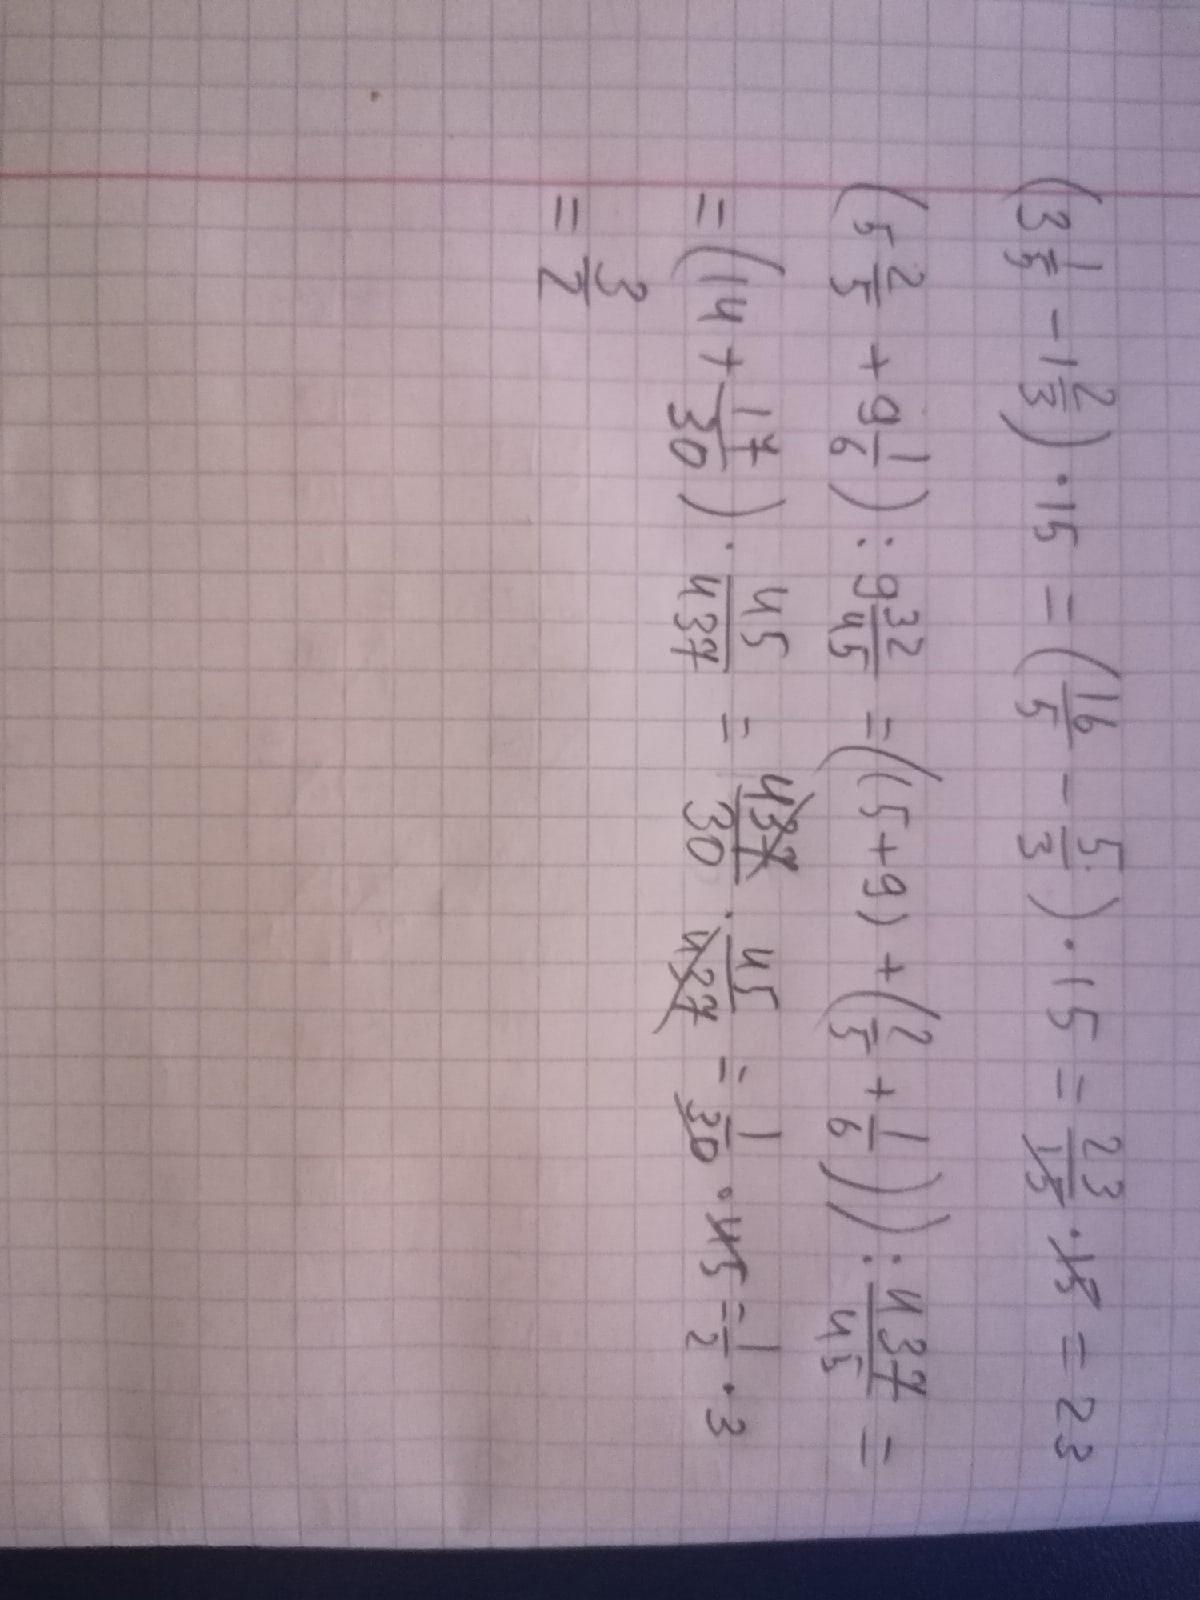 (3 1/5 - 1 2/3) · 15 = (16/5 - 5/3) · 15 = 23/15 · 15 = 23
(5 2/5 + 9 1/6) : 9 32/45 = ((5+9) + (2/5 + 1/6)) : 437/45 =
= (14 + 17/30) · 45/437 = 437/30 · 45/437 = 1/30 · 45 = 1/2 · 3
= 3/2